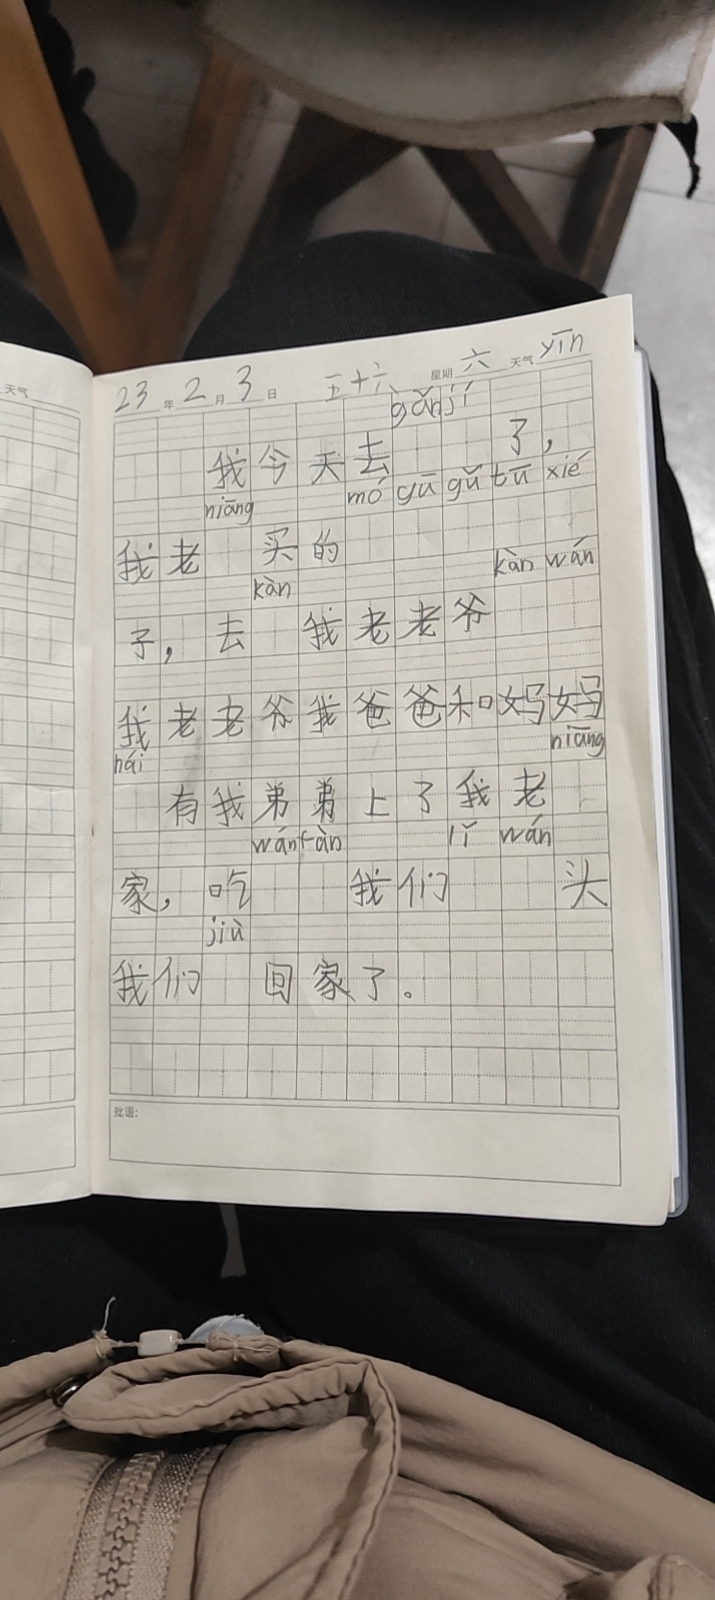 天气
23年2月3日 五十六 星期六 天气yīn
gǎnjí
我今天去 了,
niāng mó gū gǔ tū xié
我老 买的
kàn kàn wán
子,去 我老老爷
我老老爷我爸爸和妈妈
hái niāng
有我弟弟上了我老
wánfàn lǐ wán
家,吃 我们 头
jiù
我们 回家了。
批语: